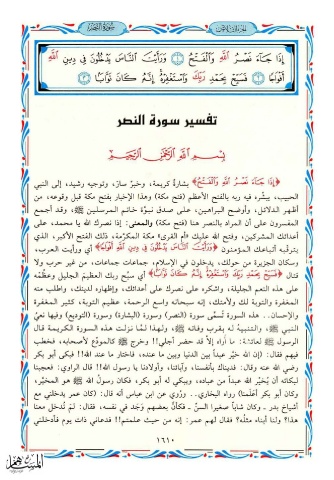 سورة النصر
إِذَا جَاءَ نَصْرُ اللَّهِ وَالْفَتْحُ ۝ وَرَأَيْتَ النَّاسَ يَدْخُلُونَ فِي دِينِ اللَّهِ
أَفْوَاجًا ۝ فَسَبِّحْ بِحَمْدِ رَبِّكَ وَاسْتَغْفِرْهُ إِنَّهُ كَانَ تَوَّابًا
تفسير سورة النصر
بِسْمِ اللَّهِ الرَّحْمَنِ الرَّحِيمِ
﴿إِذَا جَاءَ نَصْرُ اللَّهِ وَالْفَتْحُ﴾ بشارة كريمة، وخبر سار، وتوجيه رشيد، إلى النبي
الحبيب، يبشره فيه ربه بالفتح الأعظم (فتح مكة) وهذا الإخبار بفتح مكة قبل وقوعه، من
أظهر الدلائل، وأوضح البراهين، على صدق نبوة خاتم المرسلين ﷺ، وقد أجمع
المفسرون على أن المراد بالنصر هنا (فتح مكة) والمعنى: إذا نصرك الله يا محمد، على
أعدائك المشركين، وفتح الله عليك «أم القرى» مكة المكرمة، ذلك الفتح الأكبر، الذي
يترقبه أتباعك المؤمنون ﴿وَرَأَيْتَ النَّاسَ يَدْخُلُونَ فِي دِينِ اللَّهِ أَفْوَاجًا﴾ أي ورأيت العرب،
وسكان الجزيرة من حولك، يدخلون في الإسلام، جماعات جماعات، من غير حرب ولا
قتال ﴿فَسَبِّحْ بِحَمْدِ رَبِّكَ وَاسْتَغْفِرْهُ إِنَّهُ كَانَ تَوَّابًا﴾ أي سبح ربك العظيم الجليل وعظمه
على هذه النعم الجليلة، واشكره على نصرك على أعدائك، وإظهاره لدينك، واطلب منه
المغفرة والتوبة لك ولأمتك، إنه سبحانه واسع الرحمة، عظيم التوبة، كثير المغفرة
والإحسان.. هذه السورة تسمى سورة (النصر) وسورة (البشارة) وسورة (التوديع) وفيها نعي
النبي ﷺ، والتنبيه له بقرب وفاته ﷺ، ولهذا لما نزلت هذه السورة الكريمة قال
الرسول ﷺ لعائشة: ما أراه إلا قد حضر أجلي!! وخرج ﷺ كالمودع لأصحابه، فخطب
فيهم فقال: (إن الله خير عبداً بين الدنيا وبين ما عنده، فاختار ما عند الله!! فبكى أبو بكر
رضي الله عنه وقال: فديناك بأنفسنا، وآبائنا، وأولادنا يا رسول الله!! قال الراوي: فعجبنا
لبكائه أن يخبر الله عبداً من عباده، ويبكي أبو بكر، فكان رسول الله ﷺ هو المخير،
وكان أبو بكر أعلمنا) رواه البخاري.. وروي عن ابن عباس أنه قال: (كان عمر يدخلني مع
أشياخ بدر - وكان شاباً صغيراً السن - فكأن بعضهم وجد في نفسه، فقال: لم تدخل معنا
هذا؟ ولنا أبناء مثله؟ فقال لهم عمر: إنه من حيث علمتم!! فدعاني ذات يوم فأدخلني
١٦١٠